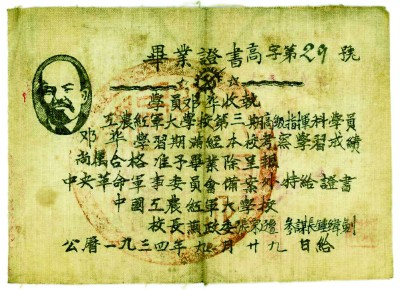 畢業證書高字第29號
學員鄧華收執
工農紅軍大學第三期高級指揮科學員
鄧華學習期滿經本校考察學習成績
尚屬合格准予畢業除呈報
中央革命軍事委員會備案外特給證書
中國工農紅軍大學校
校長兼政委張宗遜 參謀長鍾緯劍
公曆一九三四年九月廿九日給